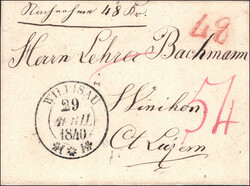 Nachnahme 48 Kr.
48
Herrn Lehrer Bachmann
Winikon
54
Ct Luzern
WILLISAU
29
APRIL
1840